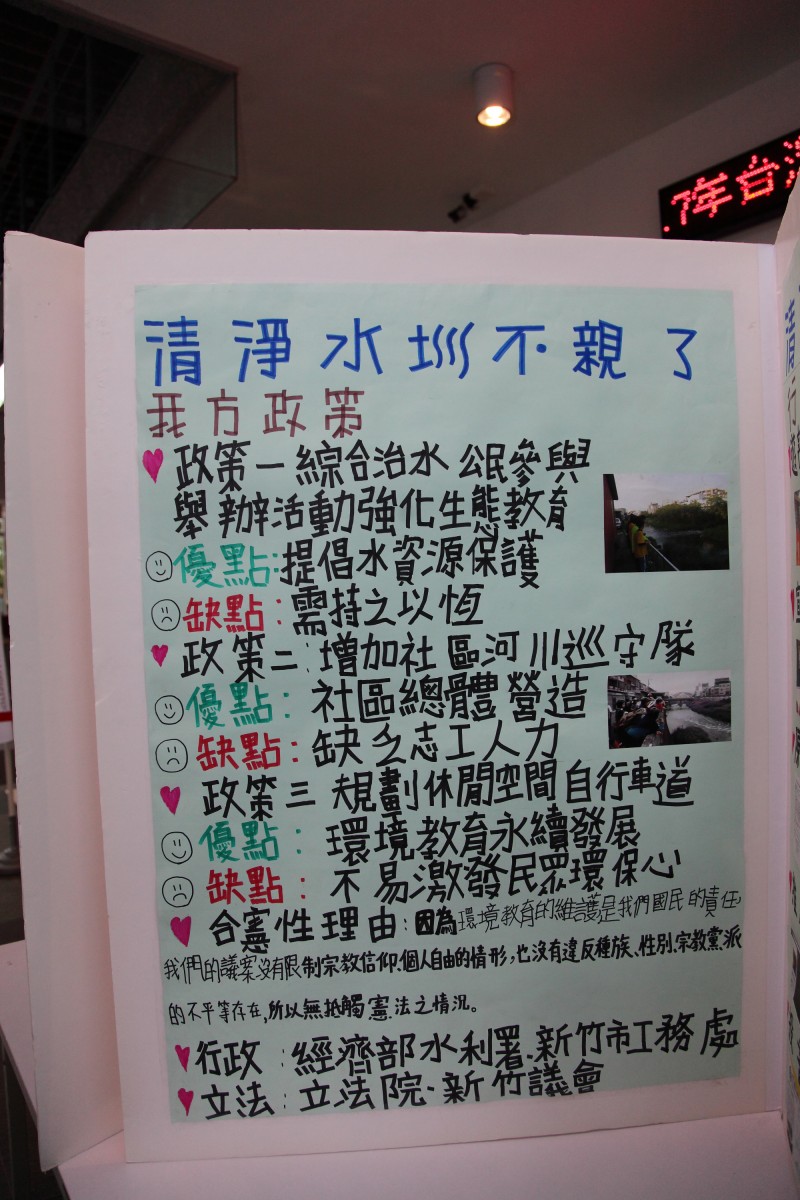 .7年台灣
清淨水圳不親了
我方政策
政策一綜合治水 公民參與
舉辦活動強化生態教育
優點:提倡水資源保護
缺點:需持之以恆
政策二:增加社區河川巡守隊
優點:社區總體營造
缺點:缺乏志工人力
政策三 規劃休閒空間自行車道
優點:環境教育永續發展
缺點:不易激發民眾環保心
合憲性理由:因為環境教育的維護是我們國民的責任,
我們的議案沒有限制宗教信仰、個人自由的情形,也沒有違反種族、性別、宗教黨派
的不平等存在,所以無抵觸憲法之情況。
行政:經濟部水利署、新竹市工務處
立法:立法院、新竹議會